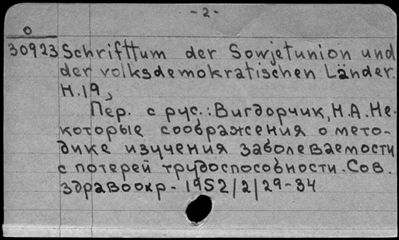 - 2 -
0
30923 Schrifttum der Sowjetunion und
der volksdemokratischen Länder.
H.19,
Пер. с рус.: Вигдорчик, Н.А. Не-
которые соображения о мето-
дике изучения заболеваемости
с потерей трудоспособности. Сов.
здравоохр - 1952/2/29-34